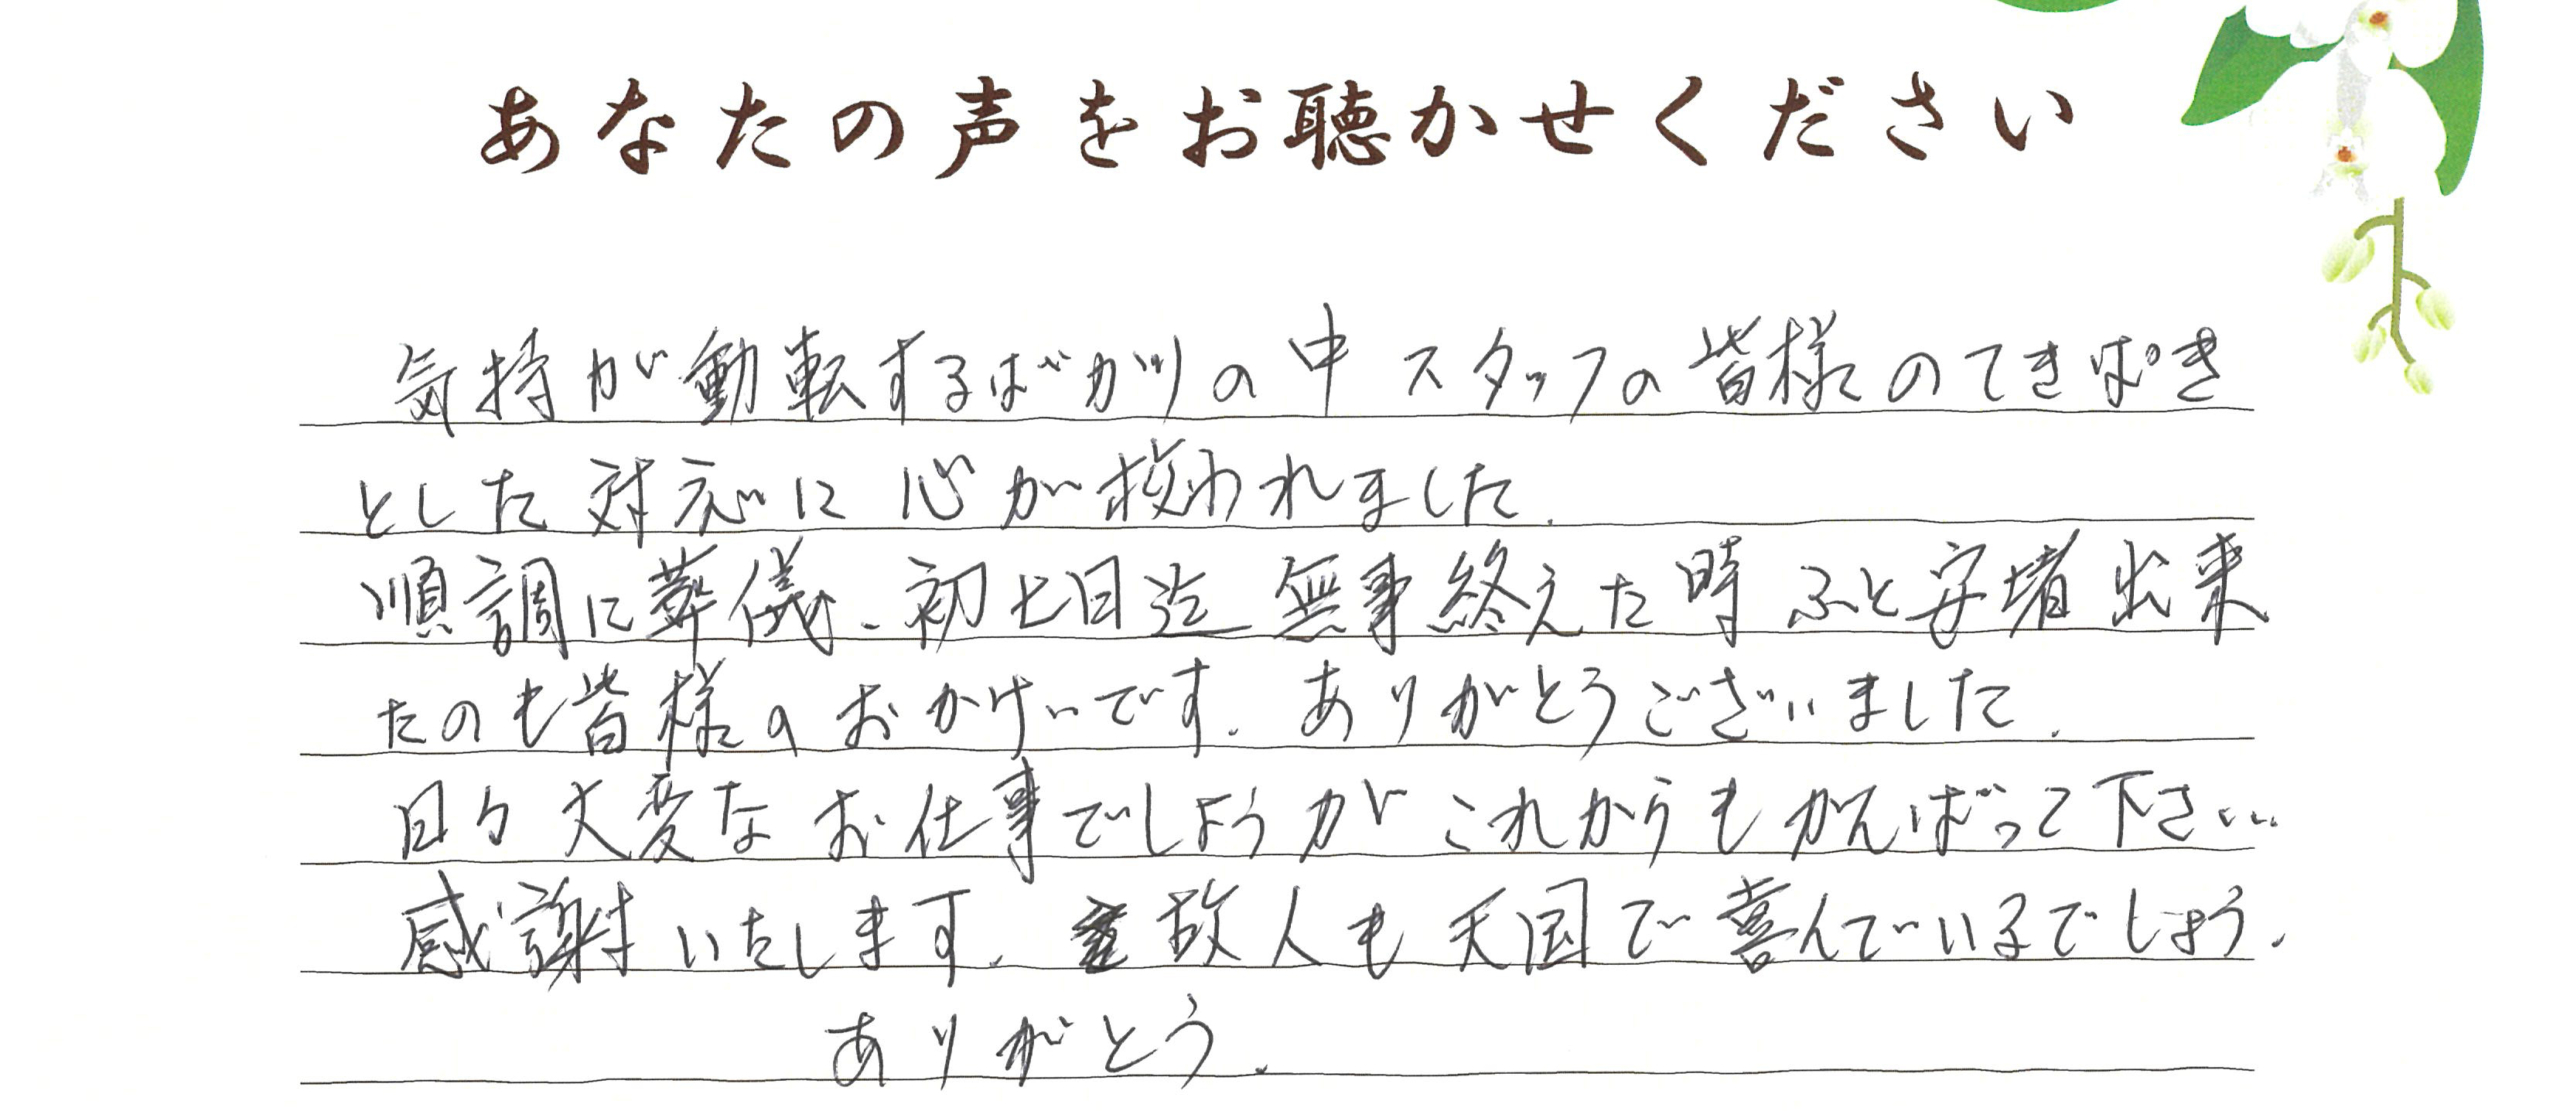 あなたの声をお聴かせください
気持が動転するばかりの中 スタッフの皆様のてきぱき
とした対応に 心が救われました.
順調に葬儀、初七日迄 無事終えた時 ふと安堵出来
たのも皆様のおかげです. ありがとうございました.
日々大変なお仕事でしょうが これからもがんばって下さい.
感謝いたします. 故人も天国で喜んでいるでしょう.
ありがとう.